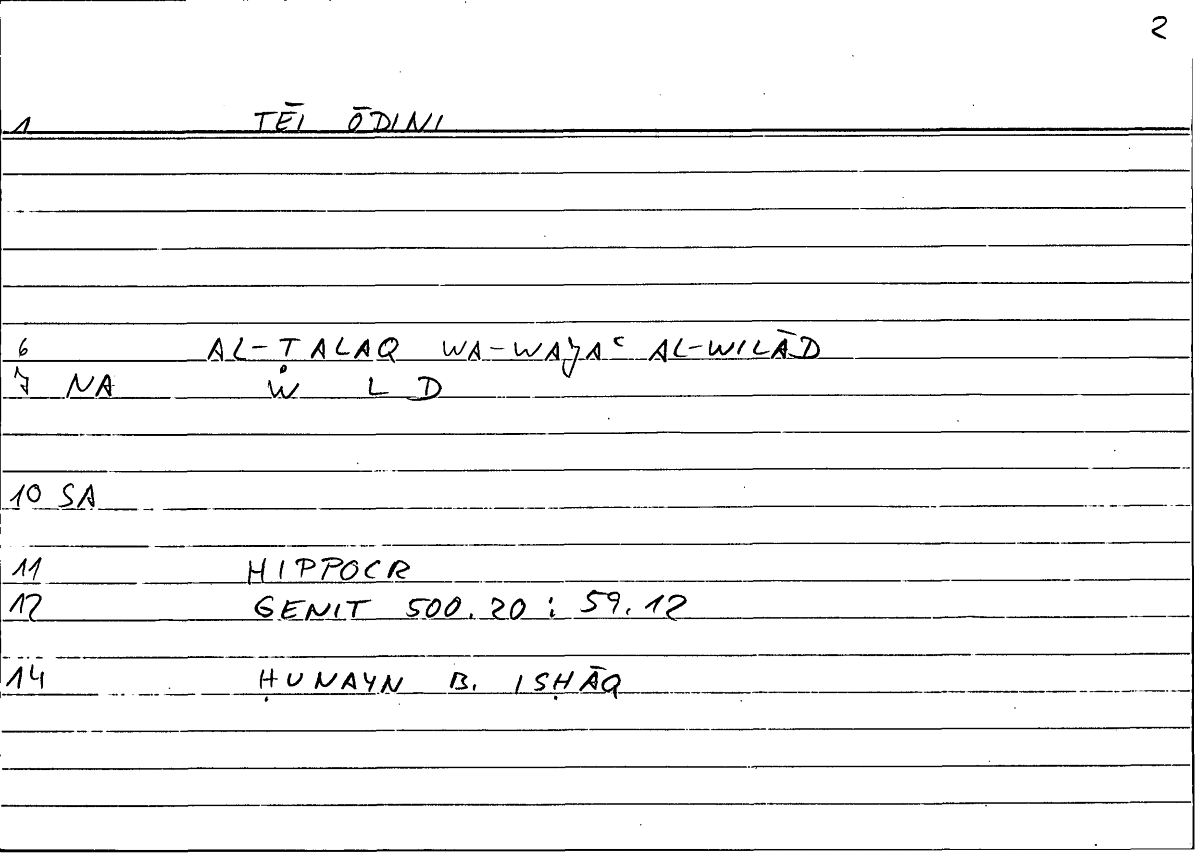 2
1 TĒI ŌDINI
6 AL-TALAQ WA-WAJAʿ AL-WILĀD
7 NA W̊ L D
10 SA
11 HIPPOCR
12 GENIT 500.20 : 59.12
14 ḤUNAYN B. ISḤĀQ